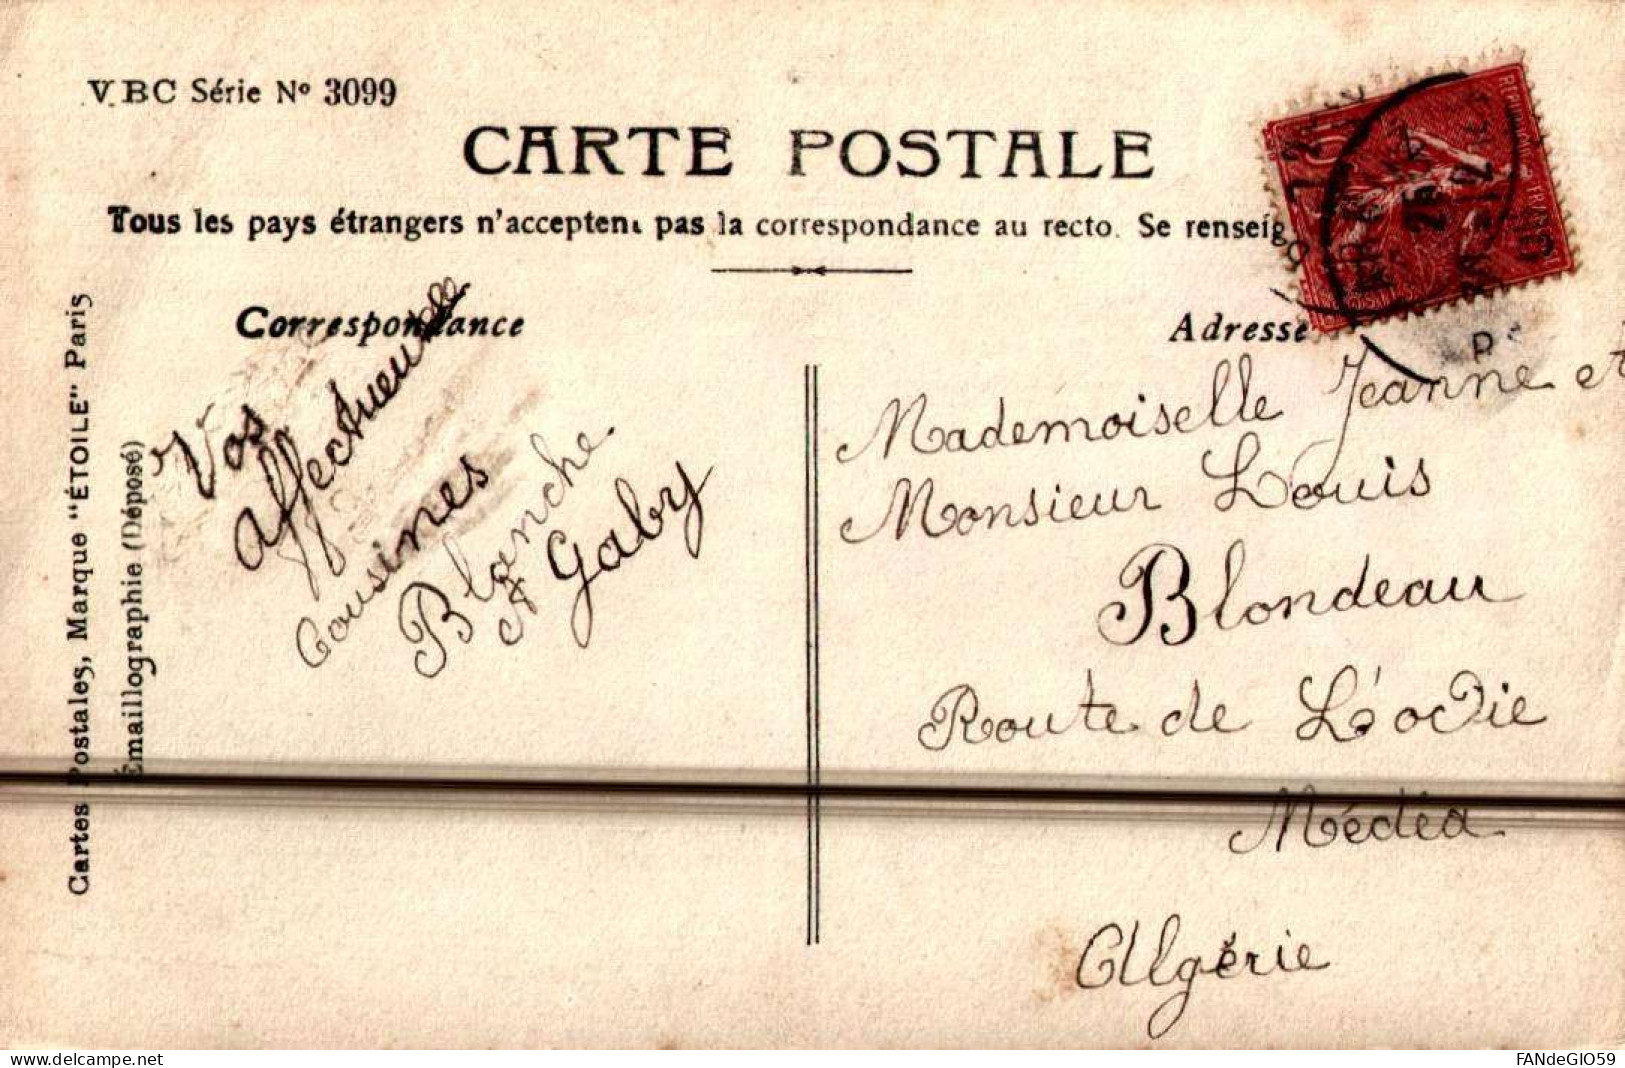 VBC Série Nº 3099
CARTE POSTALE
Tous les pays étrangers n'acceptent pas la correspondance au recto. Se renseig
Correspondance
Vos
affectueuse
Cousines
Blanche
et Gaby
Adresse
Mademoiselle Jeanne et
Monsieur Louis
Blondeau
Route de
Médéa
Algérie
Cartes Postales, Marque "ÉTOILE" Paris
Émaillographie (Déposé)
delcampe.net
FANdeGIO59